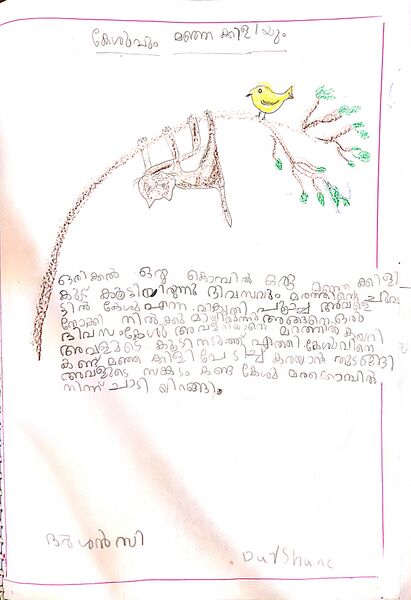 കേശുവും മഞ്ഞക്കിളിയും
ഒരിക്കൽ ഒരു കൊമ്പിൽ ഒരു മഞ്ഞക്കിളി
കൂട് കൂട്ടിയിരുന്നു ദിവസവും മരത്തിന്റെ ചുവ
ട്ടിൽ കേശു എന്ന പൂച്ച അവളെ
നോക്കി നിൽക്കു മായിരുന്നു അങ്ങനെ ഒരു
ദിവസം കേശു അവളറിയാതെ മരത്തിൽ കയറി
അവളുടെ കൂടിനടുത്ത് എത്തി കേശുവിനെ
കണ്ട് മഞ്ഞ ക്കിളി പേടിച്ച് കരയാൻ തുടങ്ങി
അവളുടെ സങ്കടം കണ്ട കേശു മരക്കൊമ്പിൽ
നിന്ന് ചാടി യിറങ്ങി.
ദർശൻ സി